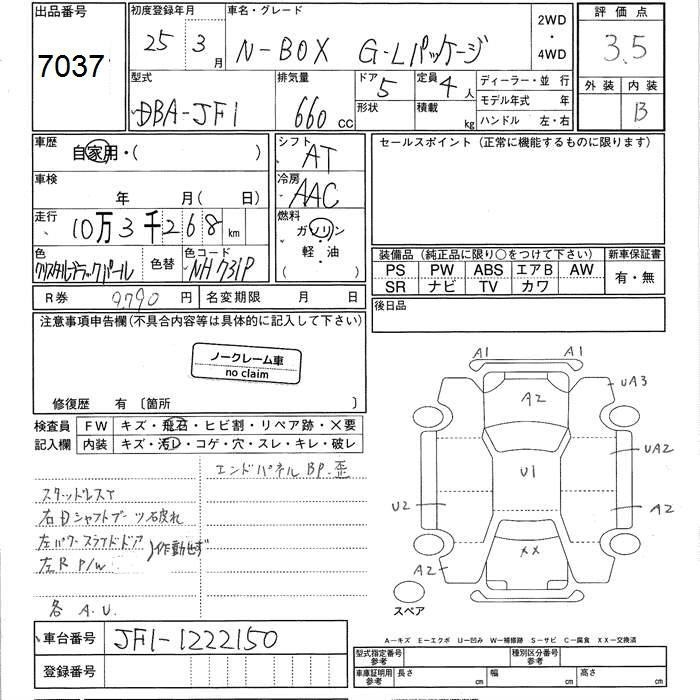 出品番号
7037
初度登録年月
25 3月
車名・グレード
N-BOX G-Lパッケージ
2WD
・
4WD
評価点
3.5
外装 内装
B
型式
DBA-JF1
排気量
660 cc
ドア 5
形状
定員 4人
積載 kg
ディーラー・並 行
モデル年式 年
ハンドル 左・右
車歴
自家用・( )
シフト
AT
セールスポイント（正常に機能するものに限ります）
車検
年 月( 日)
冷房
AAC
走行
10万3千268 km
燃料
ガソリン
・
軽・油
・
色
クリスタルブラックパール
色替
色コード
NH731P
装備品（純正品に限り○をつけて下さい）
新車保証書
PS PW ABS エアB AW
SR ナビ TV カワ
有・無
R券 9,790 円
名変期限 月 日
後日品
注意事項申告欄(不具合内容等は具体的に記入して下さい)
ノークレーム車
no claim
修復歴 有 〔箇所 〕
検査員
記入欄
FW キズ・飛石・ヒビ割・リペア跡・X要
内装 キズ・汚レ・コゲ・穴・スレ・キレ・破レ
エンドパネルBP.歪
スタッドレスT
右Dシャフトブーツ破れ
左パワースライドドア
左R P/W
作動せず
各 A.U.
A1 A1
A2
UA3
U1
UA2
U2
A2
XX
A2
スペア
A－キズ E－エクボ U－凹み W－補修跡 S－サビ C－腐食 XX－交換済
車台番号 JF1-1222150
登録番号
型式指定番号
参考
種別区分番号
参考
車庫証明用
参考
長さ cm 幅 cm 高さ cm